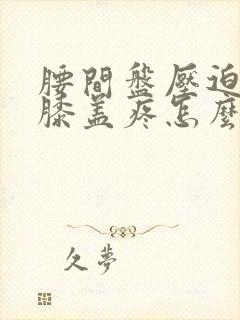 腰間盤壓迫
膝蓋疼怎麼
久夢